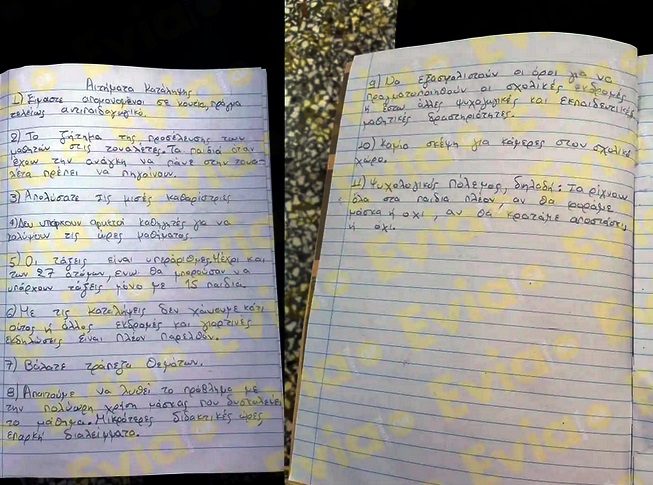 Αιτήματα Κατάληψης
1) Είμαστε απομονωμένοι σε κουτιά, πράγμα
τελείως αντιπαιδαγωγικό.
2) Το ζήτημα της προσέλευσης των
μαθητών στις τουαλέτες. Τα παιδιά όταν
έχουν την ανάγκη να πάνε στην τουα-
λέτα πρέπει να πηγαίνουν.
3) Απολύσατε τις μισές καθαρίστριες
4) Δεν υπάρχουν αρκετοί καθηγητές για να
καλύψουν τις ώρες μαθήματος
5) Οι τάξεις είναι υπεράριθμες. Μέχρι και
των 27 ατόμων, ενω θα μπορούσαν να
υπάρχουν τάξεις μόνο με 15 παιδιά.
6) Με τις καταλήψεις δεν χάνουμε κάτι
ούτως ή άλλως εκδρομές και γιορτινές
εκδηλώσεις είναι πλέον παρελθόν.
7) Βάλατε τράπεζα θεμάτων.
8) Απαιτούμε να λυθεί το πρόβλημα με
την πολύωρη χρήση μάσκας που δυσκολεύει
το μάθημα. Μικρότερες διδακτικές ώρες
επαρκή διαλείμματα.
9) Να εξασφαλιστούν οι όροι για να
πραγματοποιηθούν οι σχολικές εκδρομές
ή έστω άλλες ψυχαγωγικές και εκπαιδευτικές
μαθητικές δραστηριότητες.
10) Καμία σκέψη για κάμερες στον σχολικό
χώρο.
11) Ψυχολογικός πόλεμος, δηλαδή: Τα ρίχνουν
όλα στα παιδιά πλέον, αν θα φοράμε
μάσκα ή όχι, αν θα κρατάμε αποστάσεις
ή όχι.